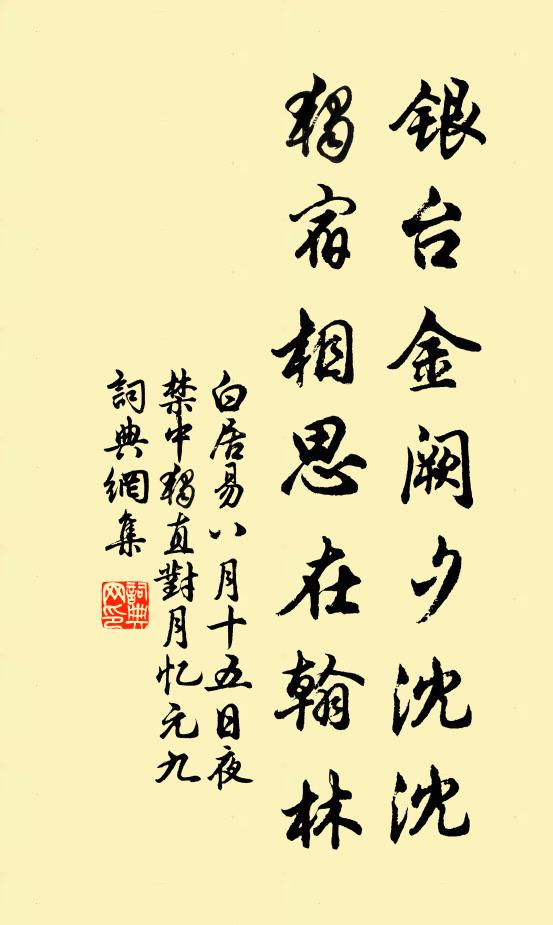 银台金阙夕沈沈
獨宿相思在翰林
白居易八月十五日夜
禁中獨直對月忆元九
詞典網集
詞典网印